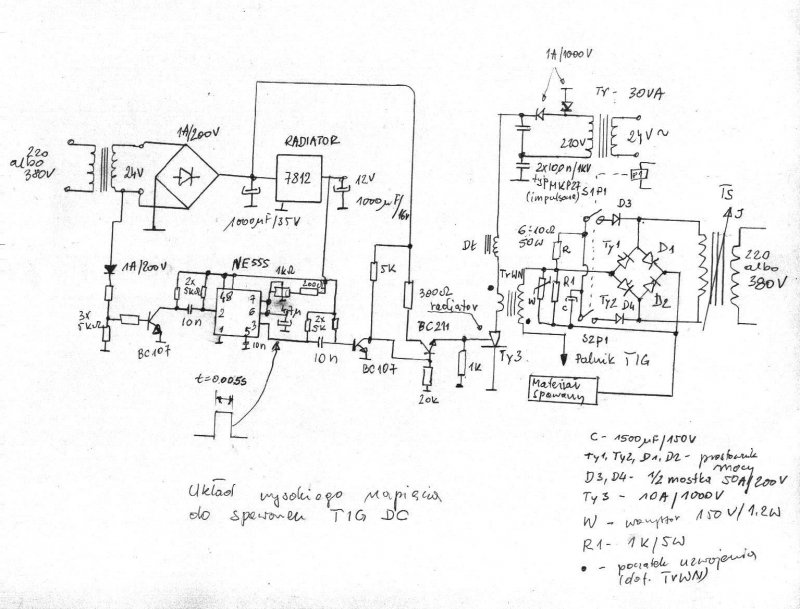 1A/1000V
Tr - 30VA
220V
24V~
2x10n/1kV
typ MKP27
(impulsowe)
S1P1
P1
D3
TS
J
220
albo
380V
24V
1A/200V
RADIATOR
7812
12V
1000μF/35V
1000μF/16V
Dł
6÷10Ω
50W
R
Ty1
D1
TrWN
W
R1
C
Ty2
D4
D2
220
albo
380V
S2P1
1A/200V
NE555
1kΩ
200Ω
2x
5kΩ
48
7
2
6
3
1
5
10n
10n
1μ
2x
5k
10n
3x
5kΩ
BC107
BC107
5k
300Ω
radiator
BC211
20k
1k
Ty3
Palnik TIG
Materiał
spawany
t=0.005s
C - 1500μF/150V
Ty1, Ty2, D1, D2 - prostownik
mocy
D3, D4 - 1/2 mostka 50A/200V
Ty3 - 10A/1000V
W - warystor 150V/1.2W
R1 - 1k/5W
• - początek uzwojenia
(dot. TrWN)
Układ wysokiego napięcia
do spawarek TIG DC